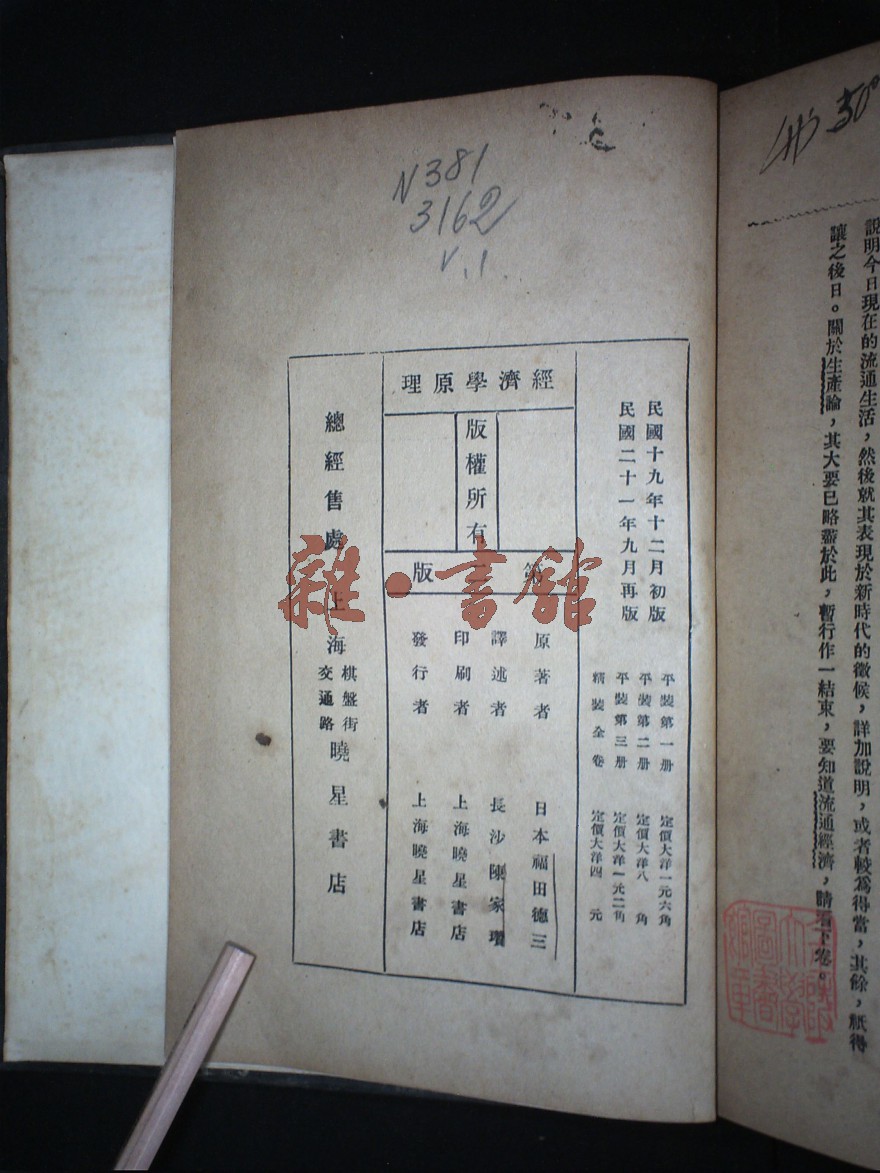 說明今日現在的流通生活，然後就其表現於新時代的徵候，詳加說明，或者較為得當，其餘，祇得
讓之後日。關於生產論，其大要已略蓋於此，暫行作一結束，要知道流通經濟，請看下卷。
50
N381
3162
V.1
民國十九年十二月初版
民國二十一年九月再版
平裝第一册 定價大洋一元六角
平裝第二册 定價大洋八角
平裝第三册 定價大洋一元二角
精裝全卷 定價大洋四元
經濟學原理
版權所有
第二版
原著者 日本福田德三
譯述者 長沙陳家瓚
印刷者 上海曉星書店
發行者 上海曉星書店
總經售處 上海棋盤街交通路曉星書店
雜·書館